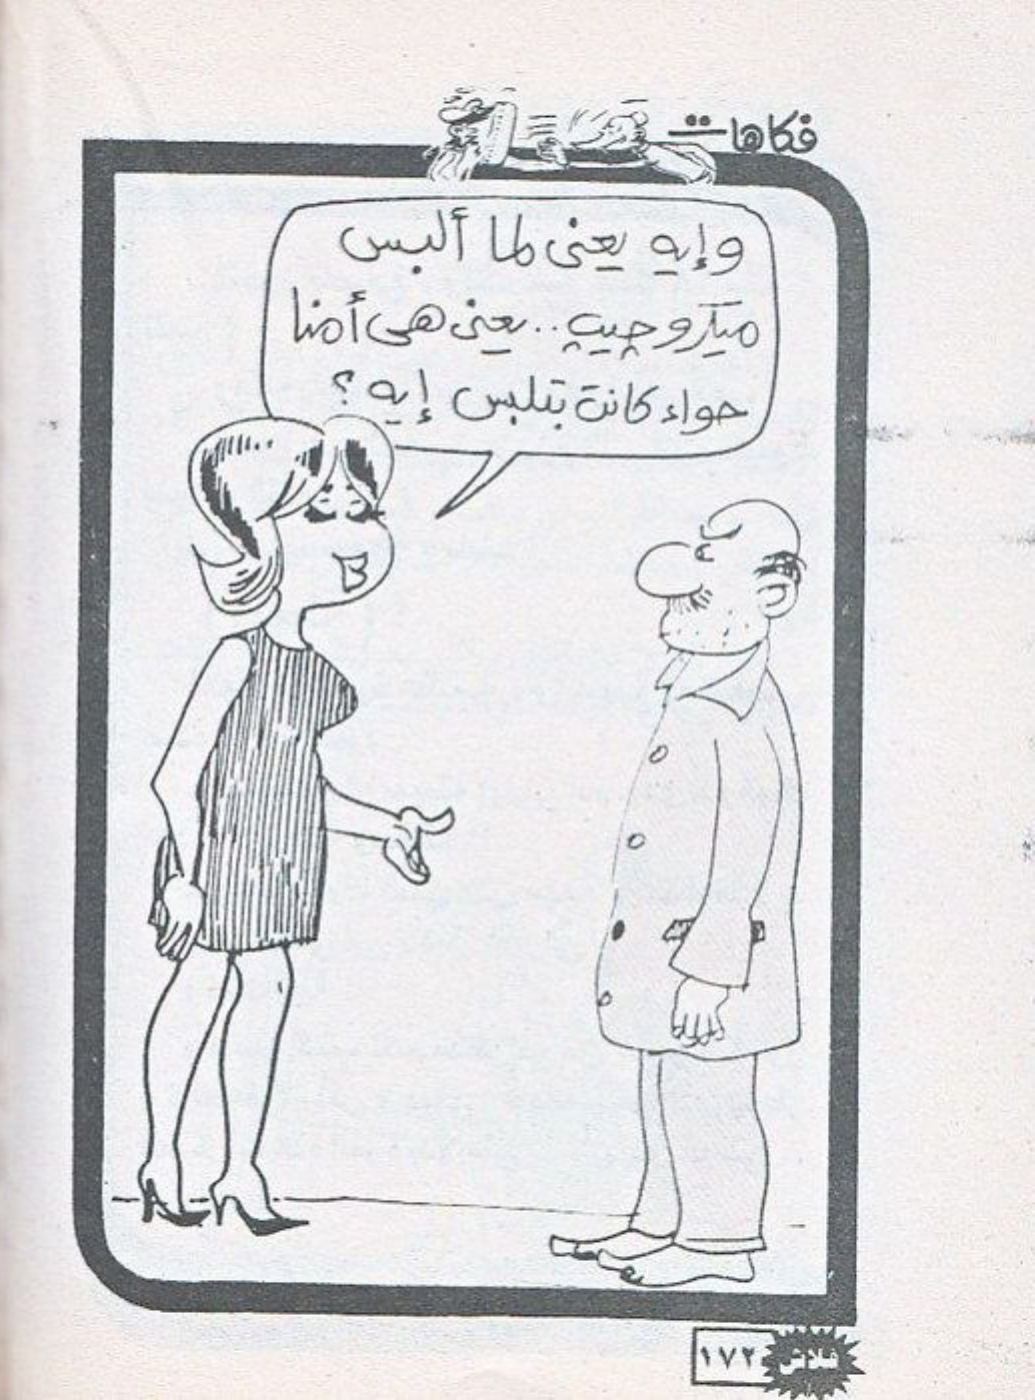 فكاهات
وإيه يعنى لما ألبس
ميكروچيپ.. يعنى هى أمنا
حواء كانت بتلبس إيه ؟
فلاش
١٧٢